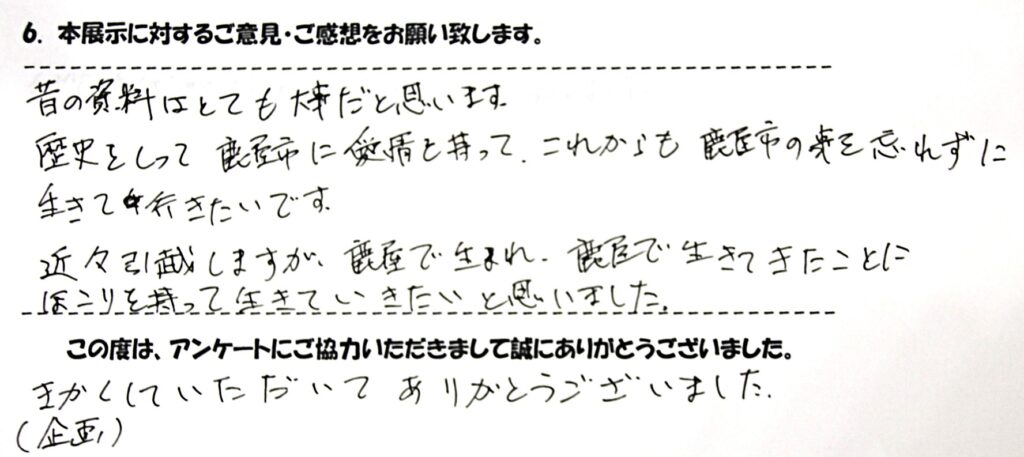 6. 本展示に対するご意見・ご感想をお願い致します。
昔の資料はとても大事だと思います。
歴史をしって 鹿屋市に愛着を持って、これからも 鹿屋市の事を忘れずに
生きて行きたいです。
近々引越しますが、鹿屋で生まれ、鹿屋で生きてきたことに
ほこりを持って生きていきたいと思いました。
この度は、アンケートにご協力いただきまして誠にありがとうございました。
きかくしていただいて ありがとうございました。
(企画)